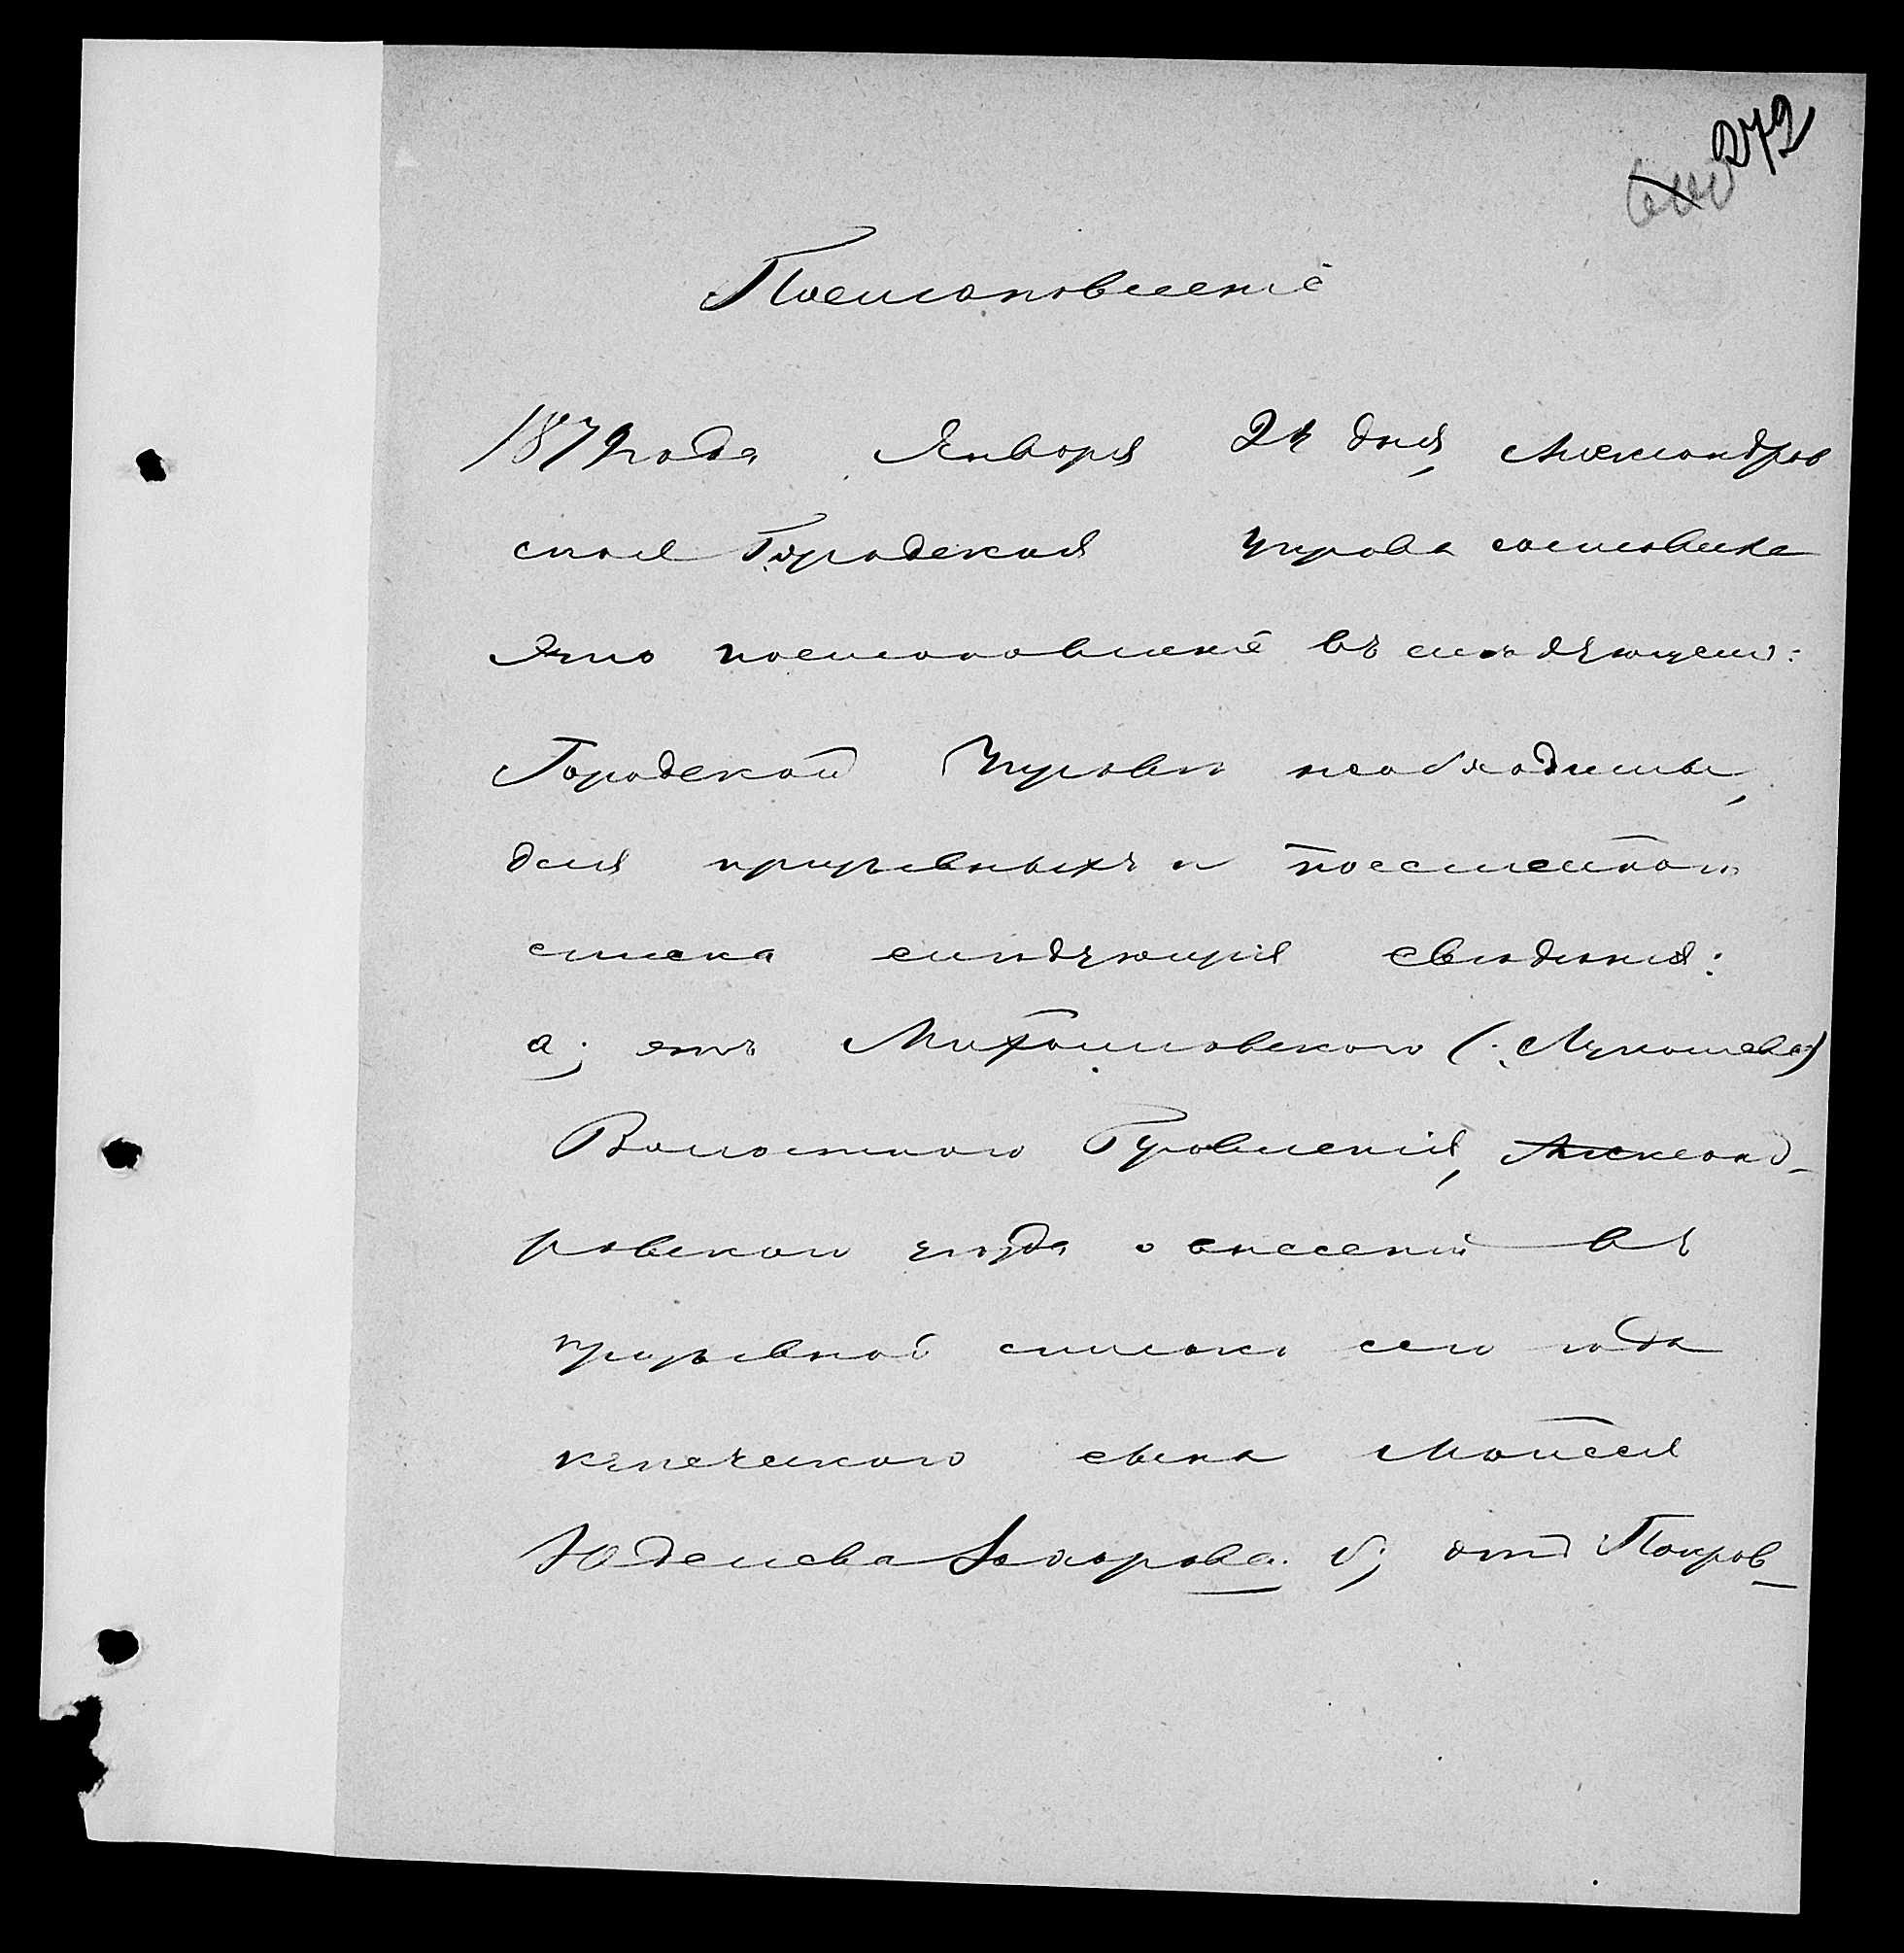 272
Постановленіе
1879 года Января 24 дня, Александров
ская Городская Управа составила
это постановленіе въ слѣдующемъ:
Городской Управѣ необходимы,
для призывныхъ и посемейнаго
списка слѣдующія свѣдѣнія:
а; отъ Михайловскаго (: Лукашева:)
Волостнаго Правленія, Александ-
ровскаго уѣзда о внесеніи въ
призывной списокъ сего года
купеческаго сына Мойсея
Юделева Захорова. б; отъ Покров-